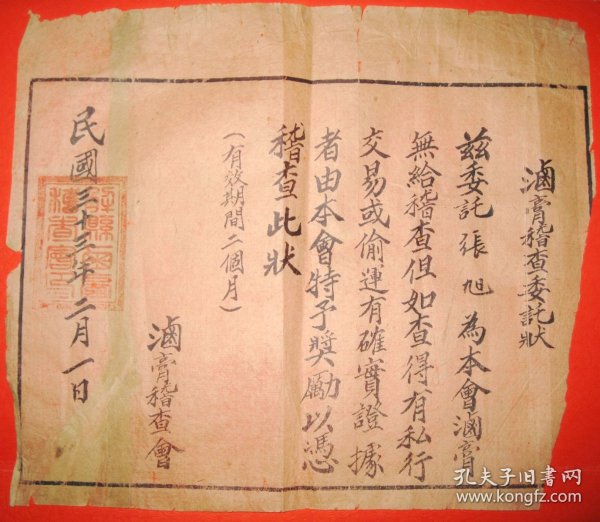 滷膏稽查委託狀
茲委託張旭為本會滷膏
無給稽查但如查得有私行
交易或偷運有確實證據
者由本會特予獎勵以憑
稽查此狀
（有效期間二個月）
滷膏稽查會
民國三十三年二月一日
孔夫子旧书网
www.kongfz.com